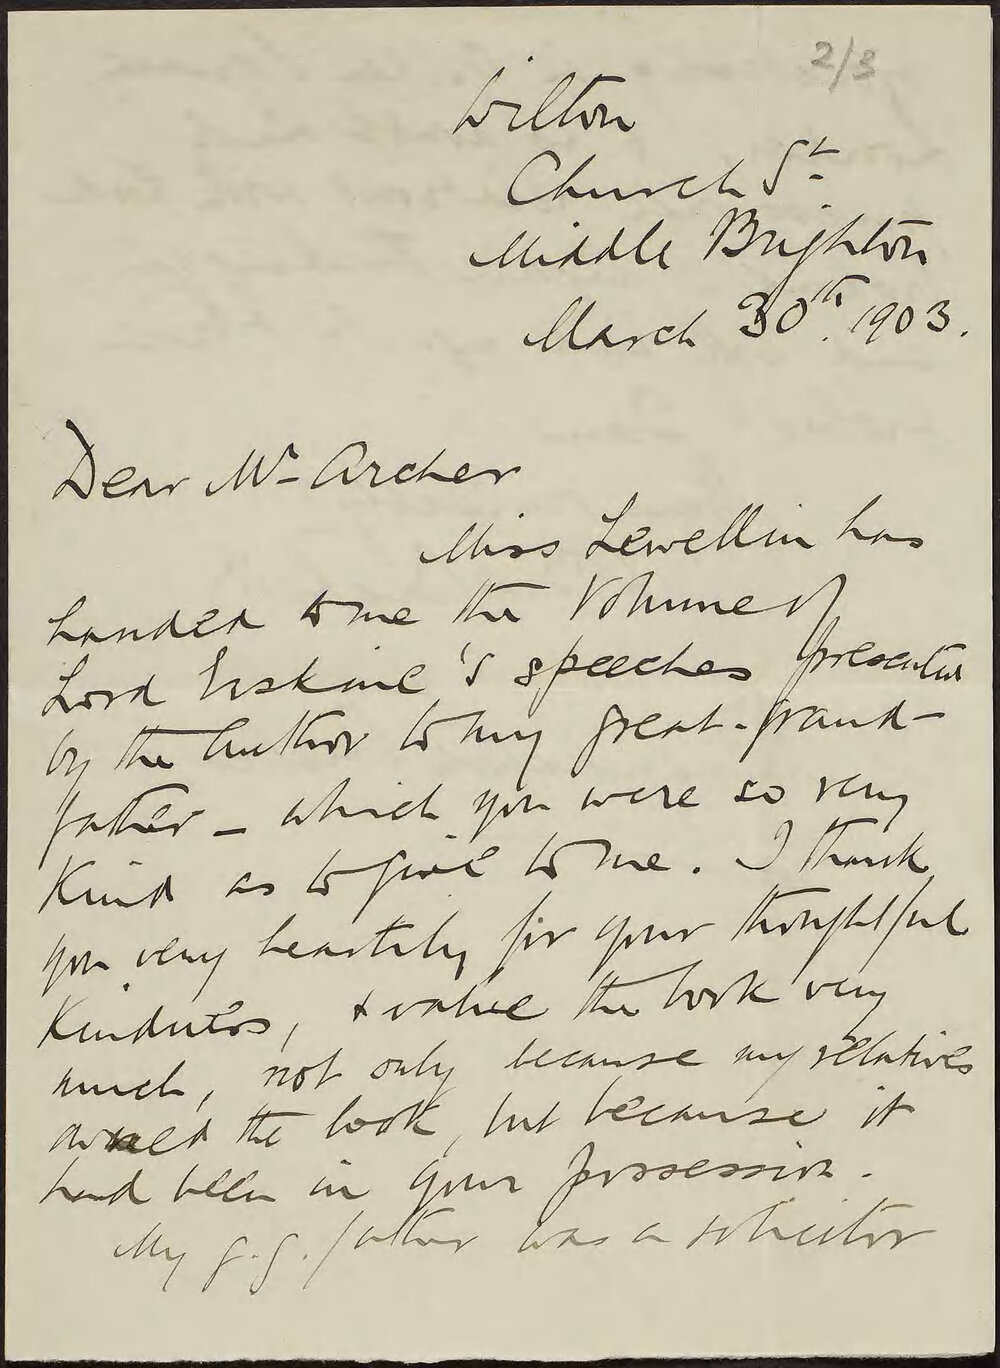 2/3
Wilton
Church St.
Middle Brighton
March 30th. 1903.
Dear Mr Archer
Miss Lewellin has
handed to me the Volume of
Lord Erskine's speeches presented
by the Author to my great-grand-
father - which you were so very
kind as to give to me. I thank
you very heartily for your thoughtful
kindness, & value the book very
much, not only because my relatives
owned the book, but because it
had been in your possession.
My g.g. father was a solicitor